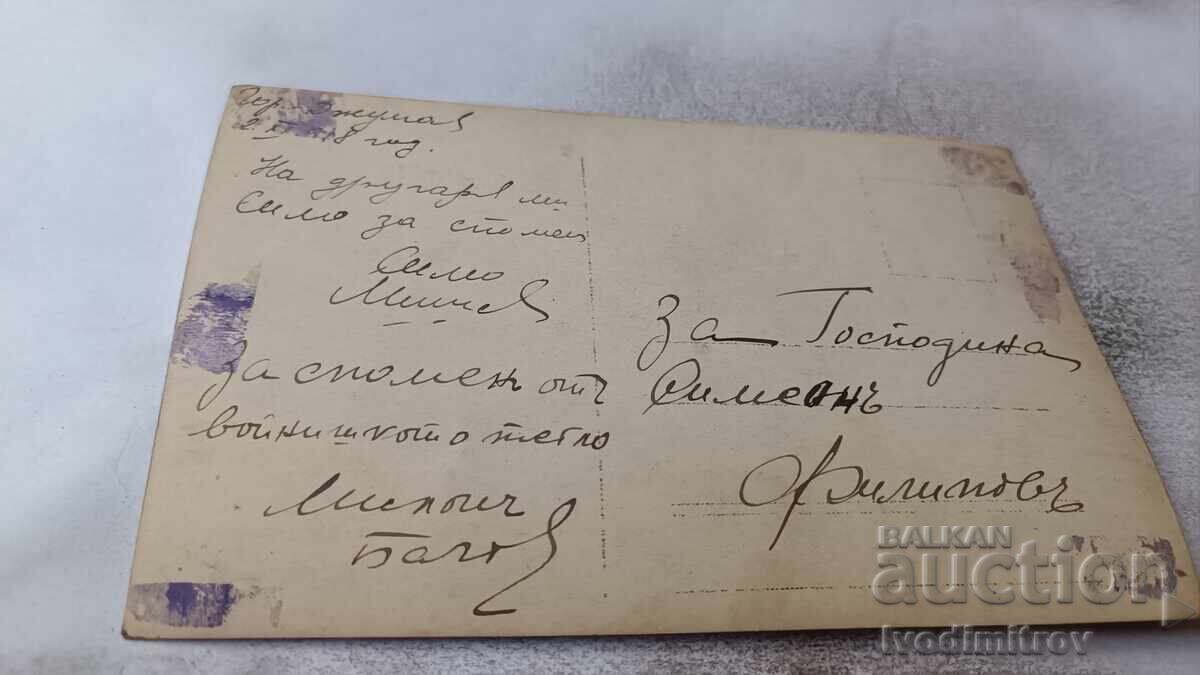 Гор. Джумая
2 XI 18 год.
На другаря ми
Симо за спомен
Симо
Мишев
За споменъ отъ
войнишкото тегло
За Господина
Симеонъ
Филиповъ
BALKAN
auction
Ivodimitrov